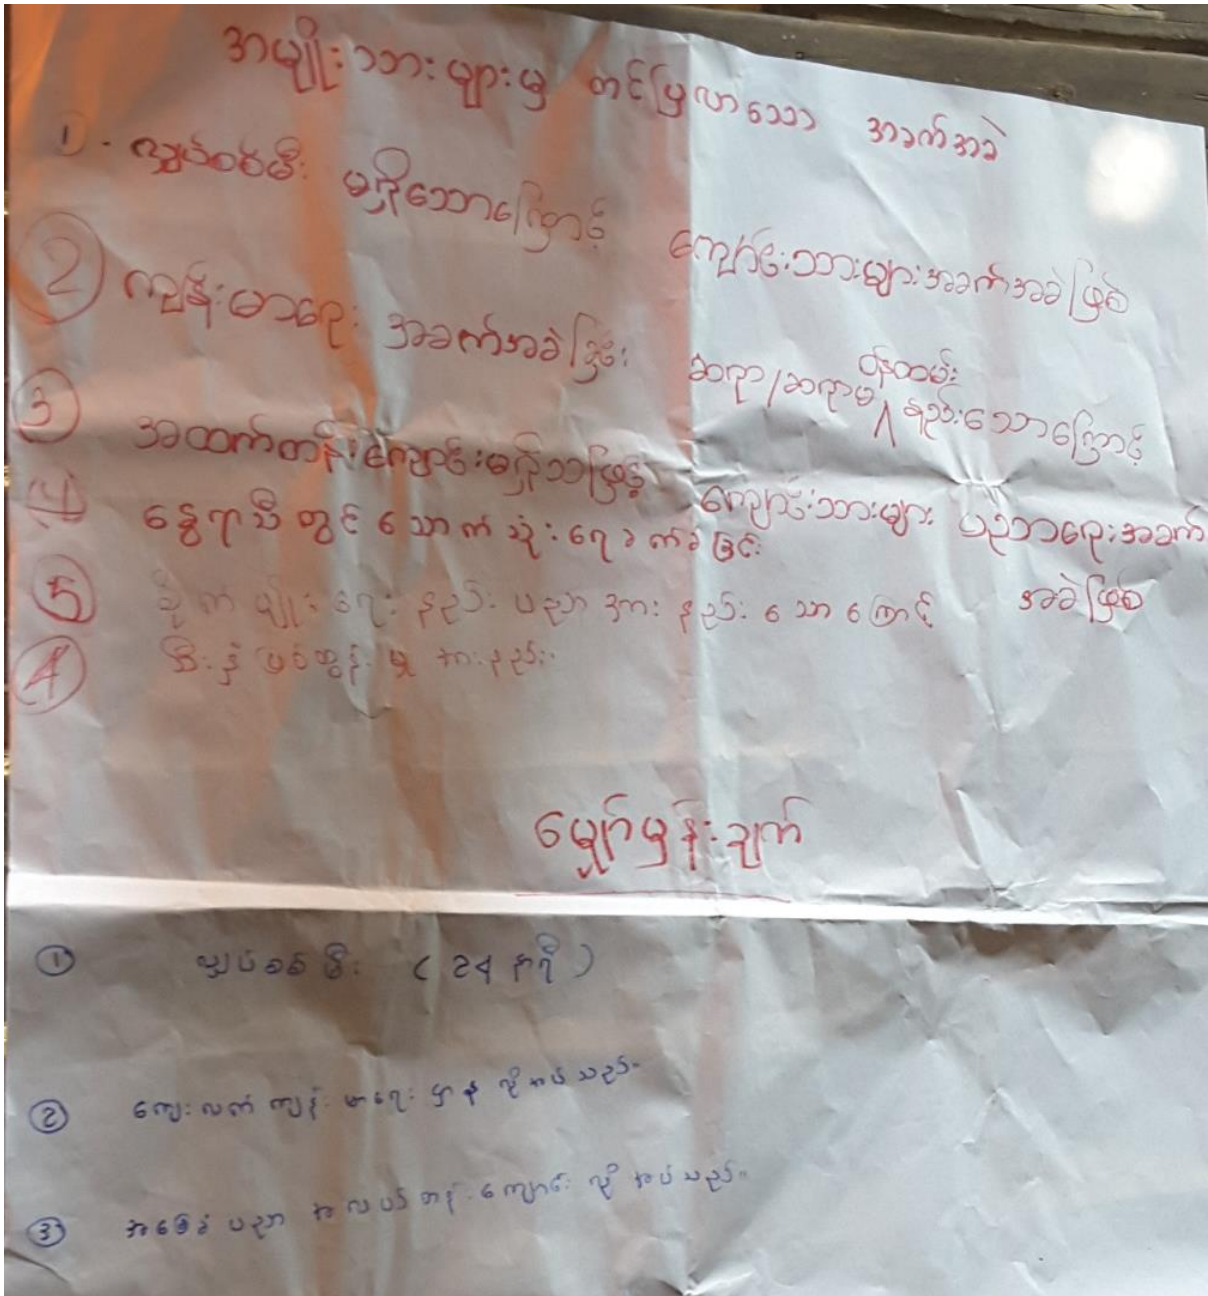 အမျိုးသားများမှ တင်ပြလာသော အခက်အခဲ
1. လျှပ်စစ်မီး မရှိသောကြောင့် ကျောင်းသားများအခက်အခဲဖြစ်
2 ကျန်းမာရေး အခက်အခဲခြင်း ဆရာ/ဆရာမ ဝန်ထမ်း နည်းသောကြောင့်
3 အထက်တန်းကျောင်းမရှိသဖြင့် ကျောင်းသားများ ပညာရေးအခက်
အခဲဖြစ်
4 နွေရာသီတွင် သောက်သုံးရေခက်ခဲခြင်း
5 စိုက်ပျိုးရေးနည်းပညာအားနည်းသောကြောင့်
4 သီးနှံဖြစ်ထွန်းမှုအားနည်း
မျှော်မှန်းချက်
1 လျှပ်စစ်မီး (24 နာရီ)
2 ကျေးလက်ကျန်းမာရေးဌာန လိုအပ်သည်။
3 အခြေခံပညာအလယ်တန်းကျောင်း လိုအပ်သည်။